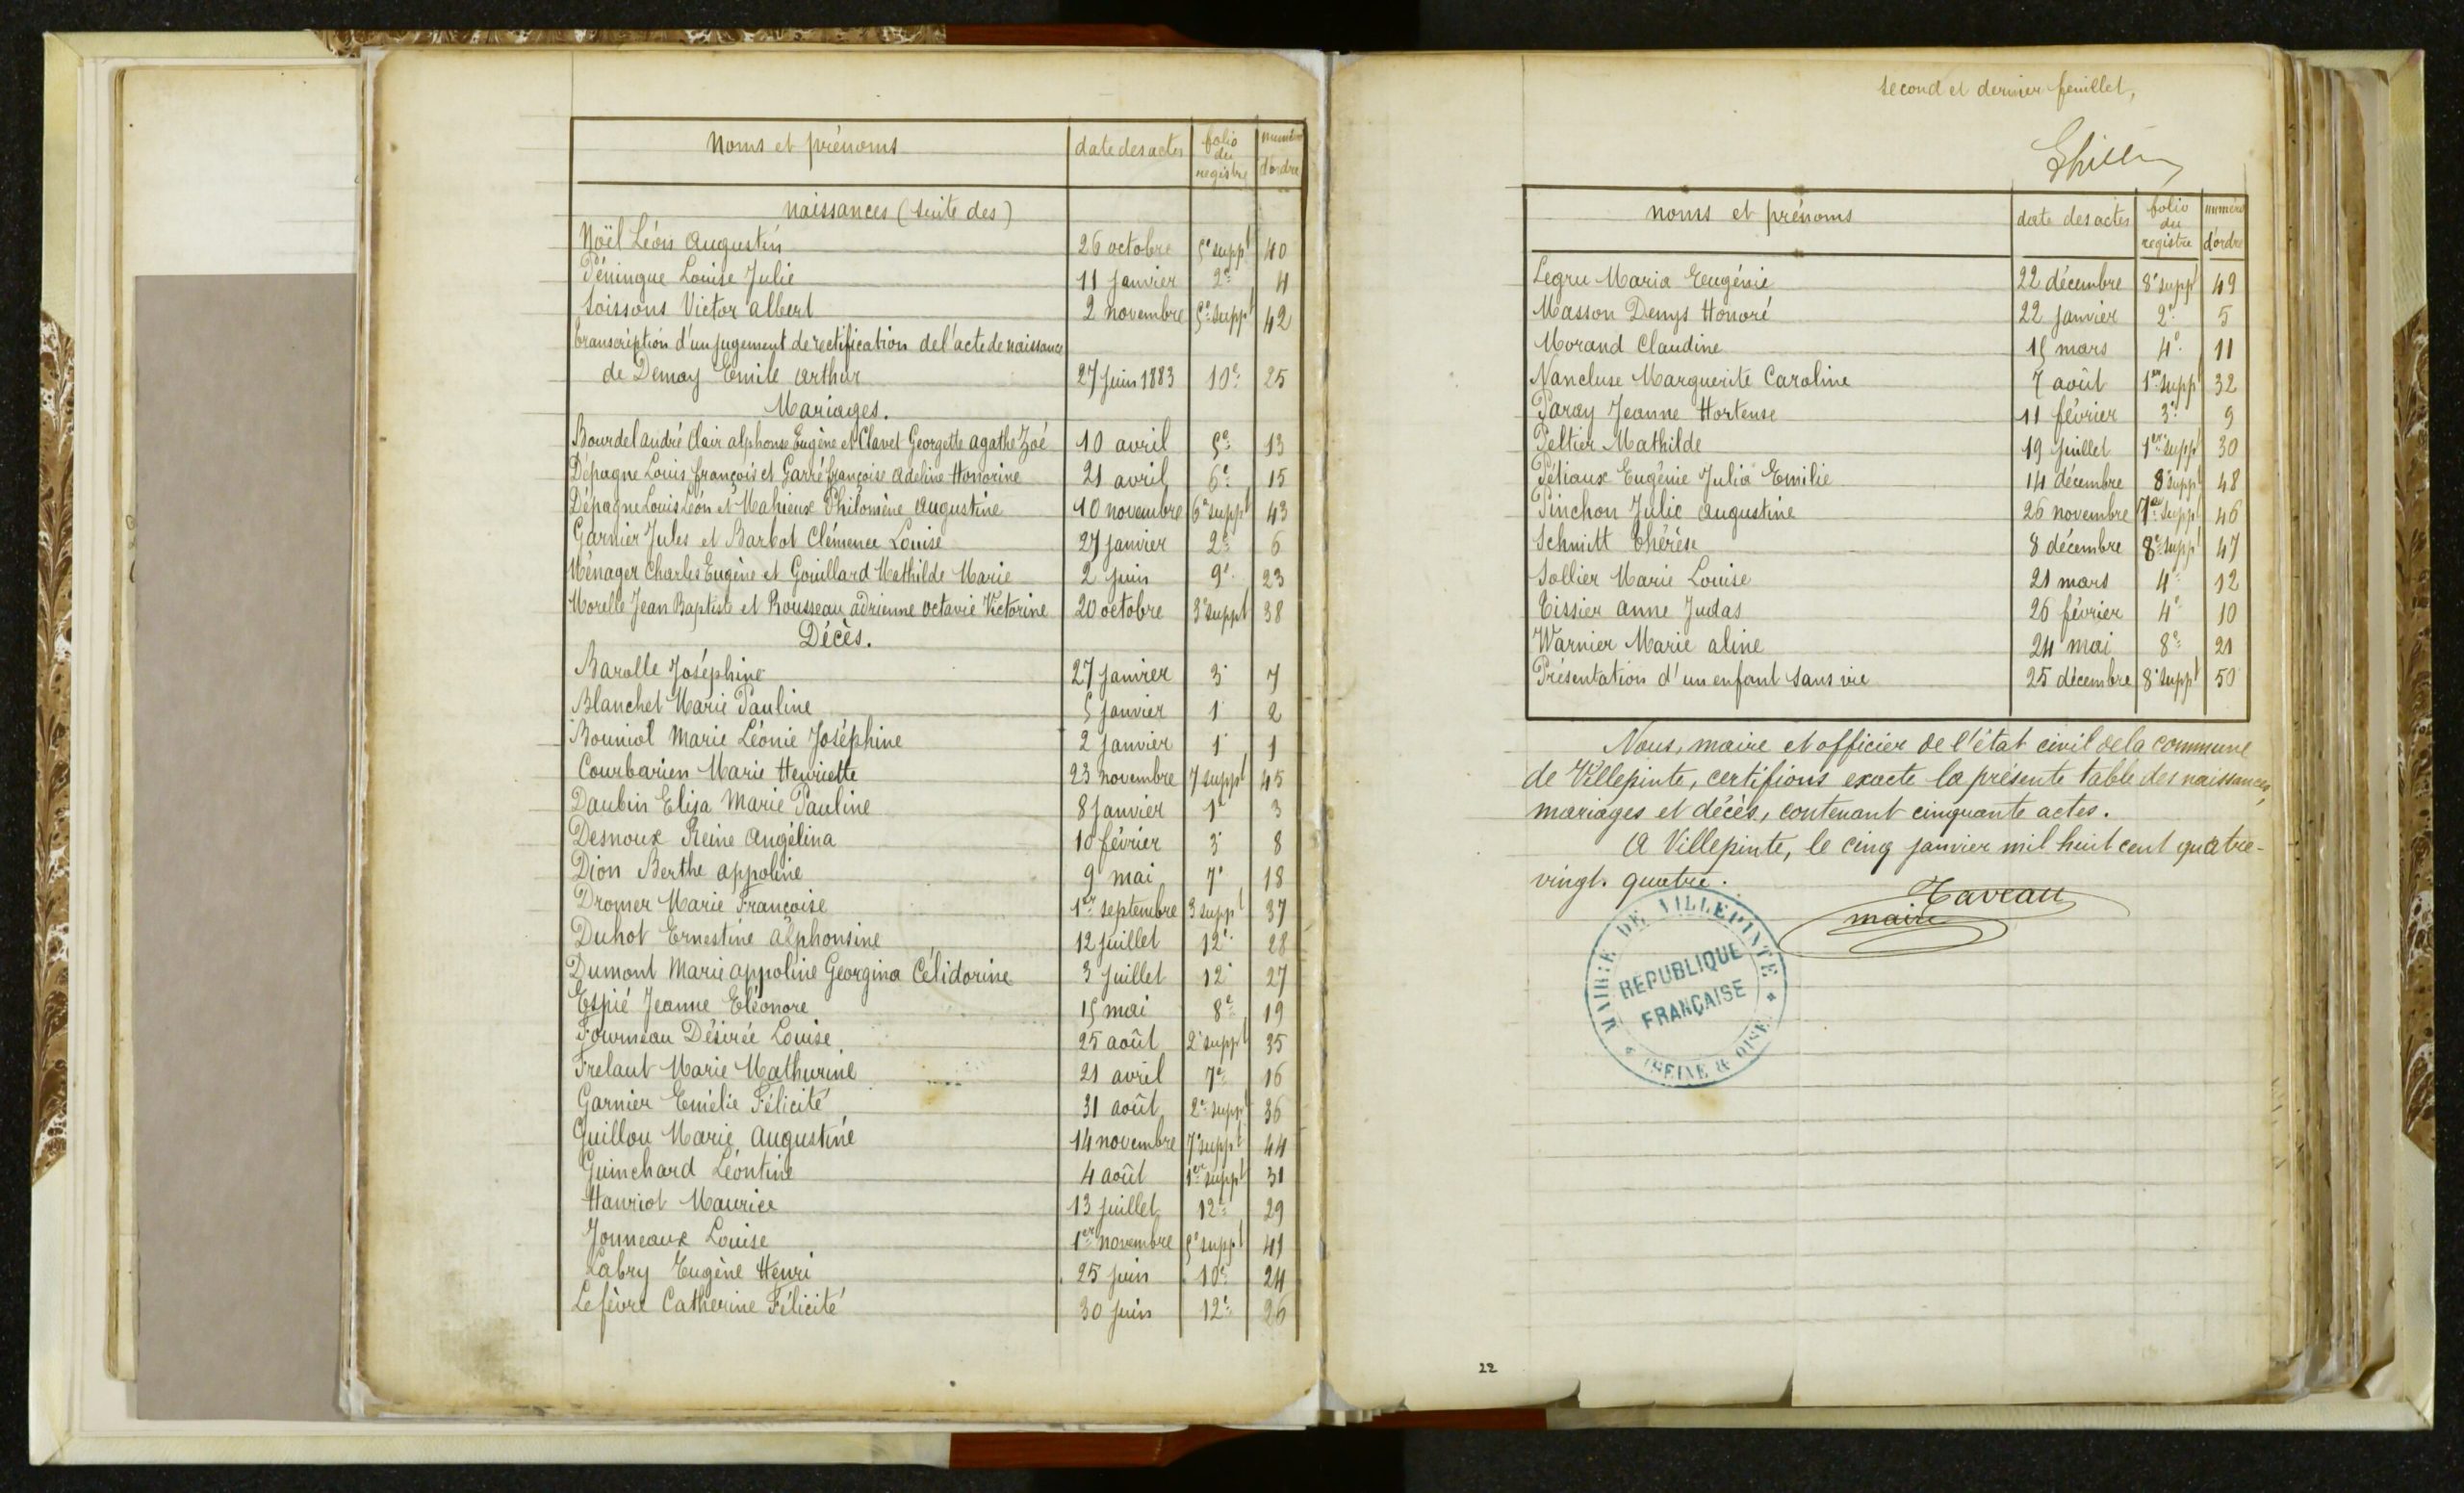 Noms et prénoms | date des actes | folio du registre | numéro d'ordre
naissances (suite des)
Noël Léon Augustin | 26 octobre | 5e suppt | 40
Péningue Louise Julie | 11 janvier | 2e | 4
Soissons Victor albert | 2 novembre | 5e suppt | 42
transcription d'un jugement de rectification de l'acte de naissance
de Demay Emile arthur | 27 juin 1883 | 10e | 25
Mariages.
Bourdel andré Clair alphonse Eugène et Clavel Georgette agathe Zoé | 10 avril | 5e | 13
Dépagne Louis françois et Garré françoise adeline Honorine | 21 avril | 6e | 15
Dépagne Louis Léon et Mahieux Philomène augustine | 10 novembre | 6e suppt | 43
Garnier Jules et Barbot Clémence Louise | 27 janvier | 2e | 6
Ménager Charles Eugène et Gouillard Mathilde Marie | 2 juin | 9e | 23
Morelle Jean Baptiste et Rousseau adrienne octavie Victorine | 20 octobre | 3e suppt | 38
Décès.
Barolle Joséphine | 27 janvier | 3e | 7
Blanchet Marie Pauline | 5 janvier | 1 | 2
Bouniol Marie Léonie Joséphine | 2 janvier | 1 | 1
Courbarien Marie Henriette | 23 novembre | 7 suppt | 45
Daubin Elisa Marie Pauline | 8 janvier | 1e | 3
Desnoux Reine angélina | 10 février | 3e | 8
Dion Berthe appoline | 9 mai | 7e | 18
Dromer Marie Françoise | 1er septembre | 3 suppt | 37
Duhot Ernestine alphonsine | 12 juillet | 12e | 28
Dumont Marie appoline Georgina Célidorine | 3 juillet | 12e | 27
Espié Jeanne Eléonore | 15 mai | 8e | 19
Fourneau Désirée Louise | 25 août | 2e suppt | 35
Frelaut Marie Mathurine | 21 avril | 7e | 16
Garnier Emélie Félicité | 31 août | 2e suppt | 36
Guillou Marie Augustine | 14 novembre | 7e suppt | 44
Guinchard Léontine | 4 août | 1er suppt | 31
Hauriot Maurice | 13 juillet | 12e | 29
Jonneaux Louise | 1er novembre | 5e suppt | 41
Labry Eugène Henri | 25 juin | 10e | 24
Lefèvre Catherine Félicité | 30 juin | 12e | 26
second et dernier feuillet,
noms et prénoms | date des actes | folio du registre | numéro d'ordre
Legru Maria Eugénie | 22 décembre | 8e suppt | 49
Masson Denys Honoré | 22 janvier | 2e | 5
Morand Claudine | 15 mars | 4e | 11
Nancluse Marguerite Caroline | 7 août | 1er suppt | 32
Paray Jeanne Hortense | 11 février | 3e | 9
Peltier Mathilde | 19 juillet | 1er suppt | 30
Pétiaux Eugénie Julia Emilie | 14 décembre | 8e suppt | 48
Pinchon Julie augustine | 26 novembre | 7e suppt | 46
Schmitt thérèse | 8 décembre | 8e suppt | 47
Sollier Marie Louise | 21 mars | 4e | 12
Tissier anne Judas | 26 février | 4e | 10
Warnier Marie aline | 24 mai | 8e | 21
Présentation d'un enfant sans vie | 25 décembre | 8e suppt | 50
Nous, maire et officier de l'état civil de la commune
de Villepinte, certifions exacte la présente table des naissances,
mariages et décès, contenant cinquante actes.
A Villepinte, le cinq janvier mil huit cent quatre-
vingt. quatre.
Taveau
maire
MAIRIE DE VILLEPINTE
RÉPUBLIQUE
FRANÇAISE
(SEINE & OISE)
22